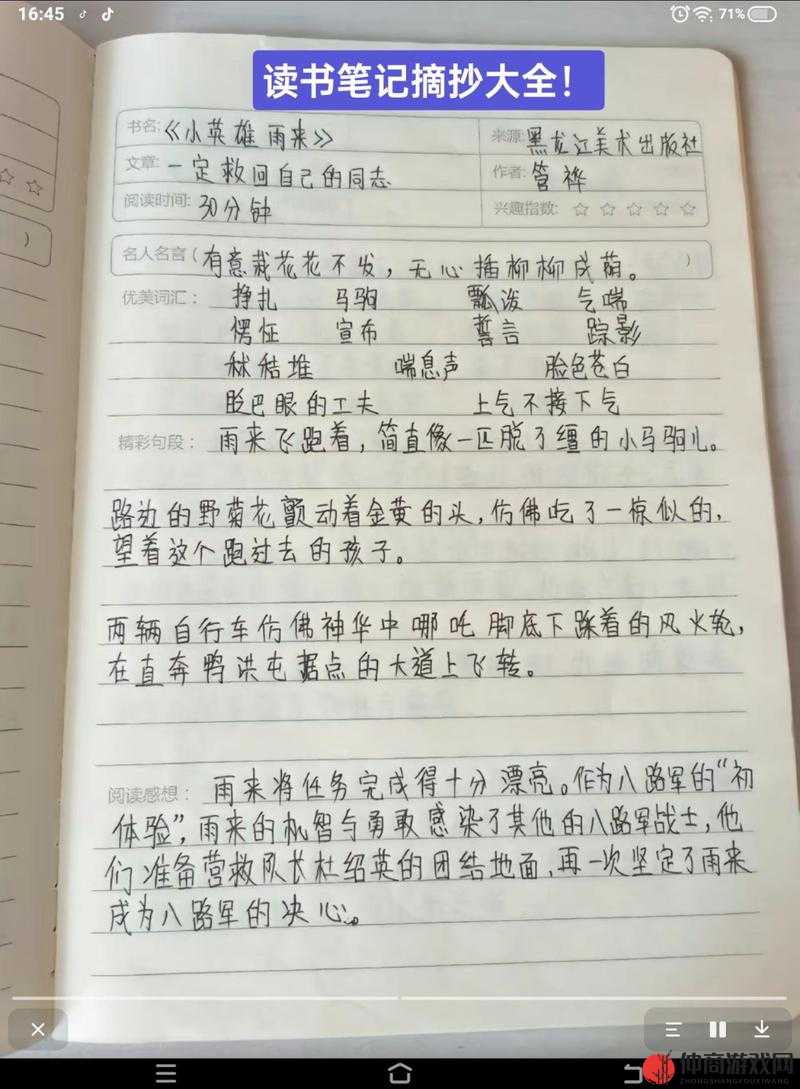 16:45
71%
读书笔记摘抄大全！
书名：《小英雄雨来》 来源：黑龙江美术出版社
文章：一定救回自己的同志 作者：管桦
阅读时间：30分钟 兴趣指数：☆ ☆ ☆ ☆ ☆
名人名言（有意栽花花不发，无心插柳柳成荫。）
优美词汇： 挣扎 马驹 瓢泼 气喘
愣怔 宣布 誓言 踪影
秫秸堆 喘息声 脸色苍白
眨巴眼的工夫 上气不接下气
精彩句段： 雨来飞跑着，简直像一匹脱了缰的小马驹儿。
路边的野菊花颤动着金黄的头，仿佛吃了一惊似的，
望着这个跑过去的孩子。
两辆自行车仿佛神华中哪吒脚底下踩着的风火轮，
在直奔鸭洪屯据点的大道上飞转。
阅读感想： 雨来将任务完成得十分漂亮。作为八路军的“初
体验”，雨来的机智与勇敢感染了其他的八路军战士，他
们准备营救队长杜绍英的团结地面，再一次坚定了雨来
成为八路军的决心。
仲商游戏网
ZHONGSHANGYOUXIWANG